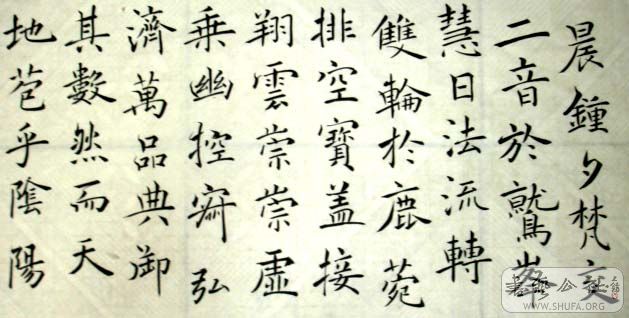 晨鍾夕梵交
二音於鷲峯
慧日法流轉
雙輪於鹿菀
排空寶盖接
翔雲崇崇虛
乘幽控寂弘
濟萬品典御
其數然而天
地苞乎陰陽
WWW.SHUFA.ORG